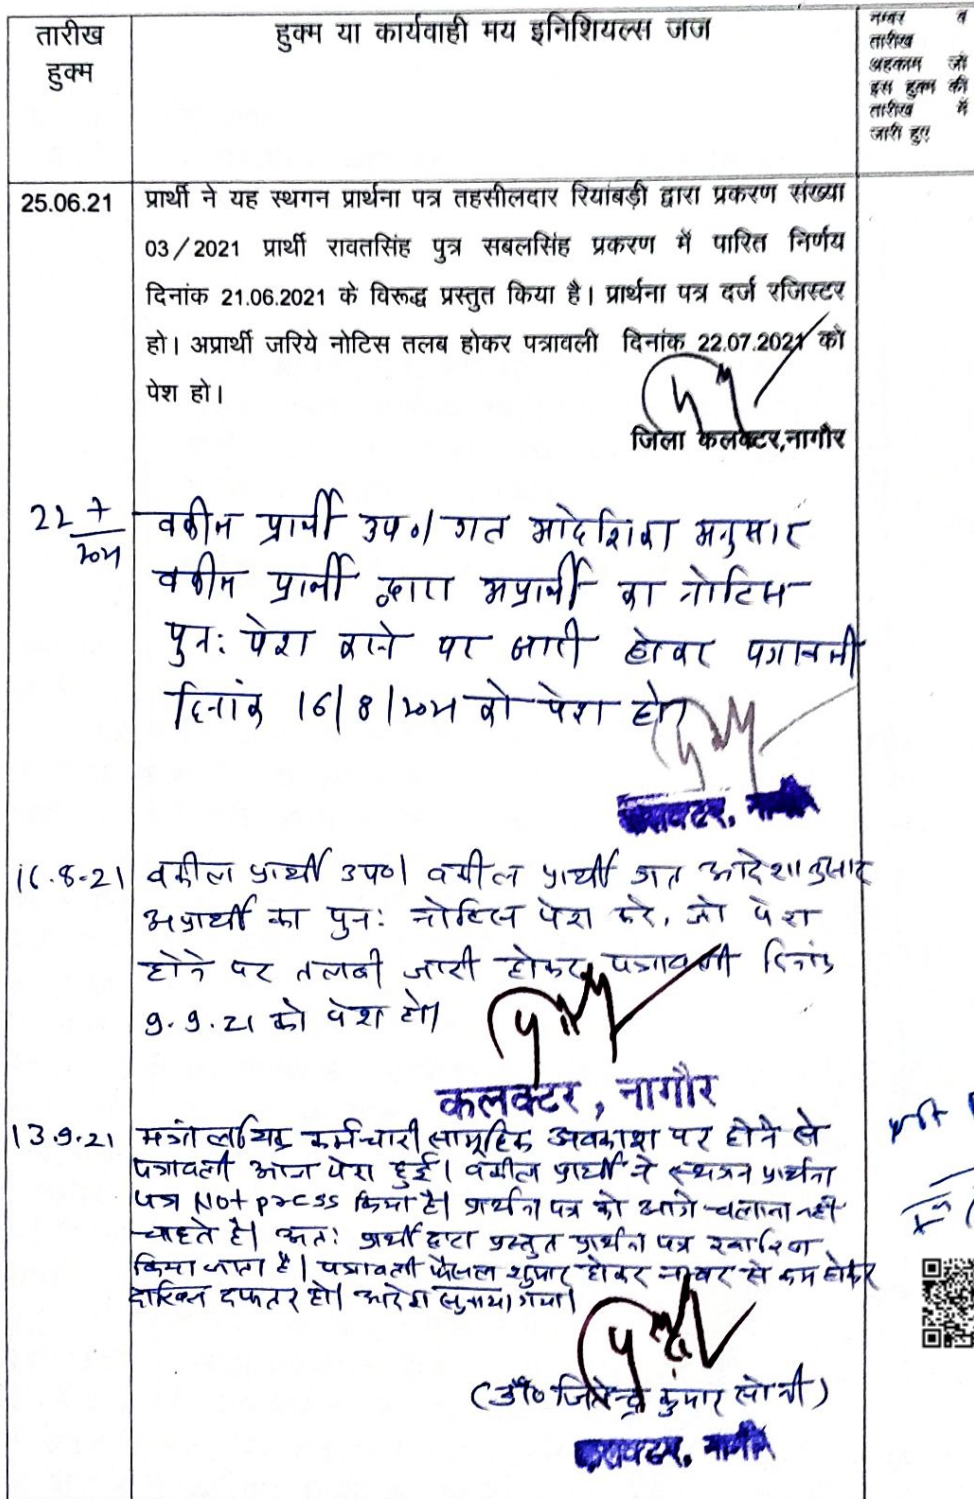 तारीख
हुक्म
हुक्म या कार्यवाही मय इनिशियल्स जज
नम्बर व
तारीख
अहकाम जो
इस हुक्म की
तारीख में
जारी हुए
25.06.21
प्रार्थी ने यह स्थगन प्रार्थना पत्र तहसीलदार रियांबड़ी द्वारा प्रकरण संख्या
03/2021 प्रार्थी रावतसिंह पुत्र सबलसिंह प्रकरण में पारित निर्णय
दिनांक 21.06.2021 के विरूद्ध प्रस्तुत किया है। प्रार्थना पत्र दर्ज रजिस्टर
हो। अप्रार्थी जरिये नोटिस तलब होकर पत्रावली दिनांक 22.07.2021 को
पेश हो।
जिला कलक्टर,नागौर
22 7
2021
वकील प्रार्थी उप०। गत आदेशिका अनुसार
वकील प्रार्थी द्वारा अप्रार्थी का नोटिस
पुन: पेश करने पर जारी होकर पत्रावली
दिनांक 16/8/2021 को पेश हो।
कलक्टर, नागौर
16.8.21
वकील प्रार्थी उप०। वकील प्रार्थी गत आदेशानुसार
अप्रार्थी का पुन: नोटिस पेश करे, जो पेश
होने पर तलबी जारी होकर पत्रावली दिनांक
9.9.21 को पेश हो।
कलक्टर, नागौर
13.9.21
मंत्रालयिक कर्मचारी सामूहिक अवकाश पर होने से
पत्रावली आज पेश हुई। वकील प्रार्थी ने स्थगन प्रार्थना
पत्र Not press किया है। प्रार्थना पत्र को आगे चलाना नही
चाहते है। अत: प्रार्थी द्वारा प्रस्तुत प्रार्थना पत्र खारिज
किया जाता है। पत्रावली फैसल शुमार होकर नम्बर से कम होकर
दाखिल दफ्तर हो। आदेश सुनाया गया।
(डॉ० जितेन्द्र कुमार सोनी)
कलक्टर, नागौर